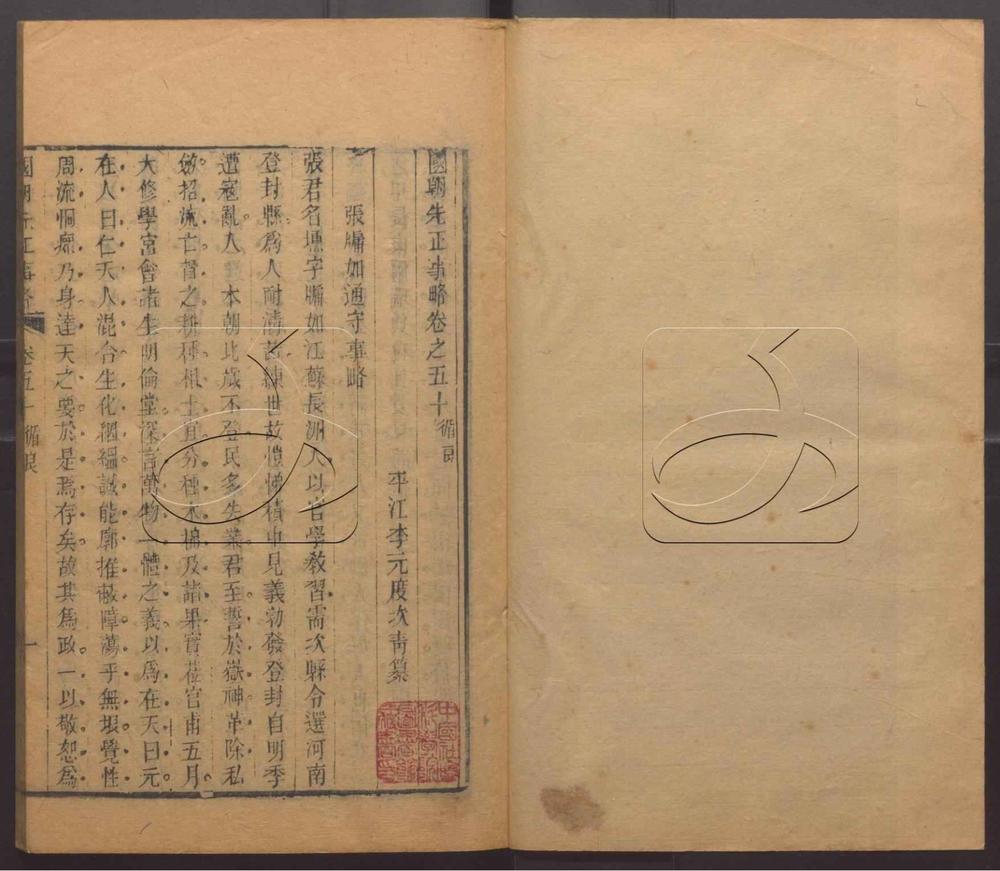 國朝先正事略卷之五十 循良
平江李元度次青纂
張牖如通守事略
張君名壎字牖如江蘇長洲人以官學教習需次縣令選河南
登封縣爲人耐清苦練世故愷悌積中見義勃發登封自明季
遭寇亂人本朝比歲不登民多失業君至誓於嶽神革除私
斂招流亡督之耕種相土宜分種木棉及諸果實莅官甫五月
大修學宮會諸生明倫堂深言萬物一體之義以爲在天曰元
在人曰仁天人混合生化絪縕誠能廓推蔽障蕩乎無垠覺性
周流恫瘝乃身達天之要於是焉存矣故其爲政一以敬恕爲
國朝先正事略 卷五十 循良 一